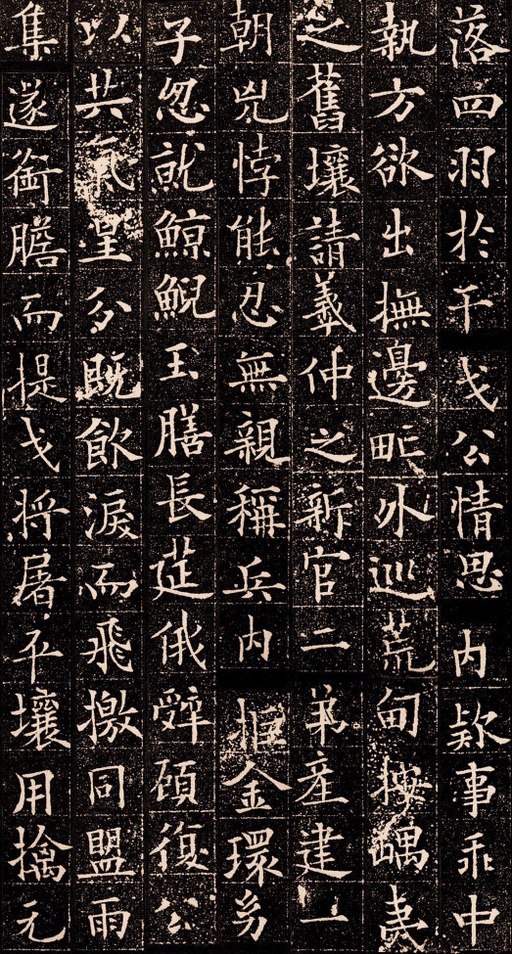 落四羽於干戈公情思内欵事乖中
執方欲出撫邊甿外巡荒甸按嵎夷
之舊壤請羲仲之新官二弟産建一
朝兇悖能忍無親稱兵内拒金環㓜
子忽就鯨鯢玉膳長莚俄辤顧復公
以共氣星分既飲淚而飛檄同盟雨
集遂銜膽而提戈将屠平壤用擒元